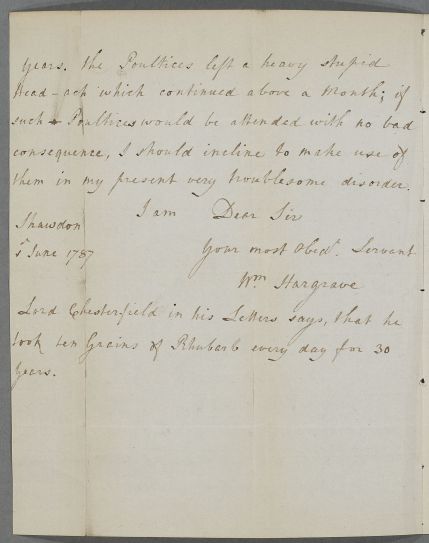 years. the Poultices left a heavy stupid
Head-ach which continued above a Month; if
such Poultices would be attended with no bad
consequence, I should incline to make use of
them in my present very troublesome disorder.
I am Dear Sir
Shawdon
5 June 1787
Your most Obedt. Servant
Wm Hargrave
Lord Chesterfield in his Letters says, that he
took ten Grains of Rhubarb every day for 30
years.